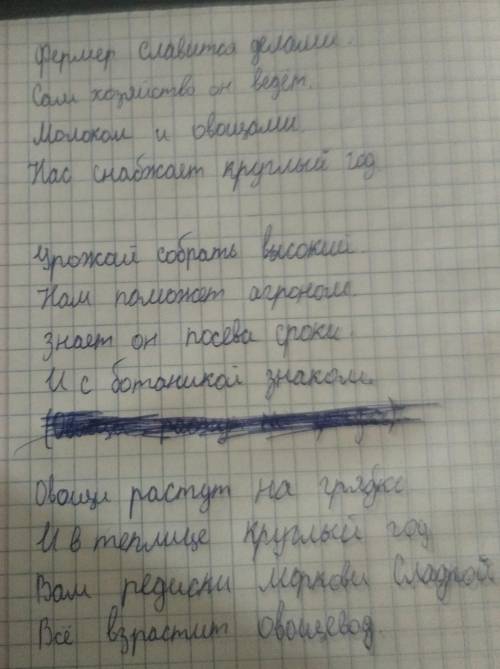 Фермер славится делами.
Сам хозяйство он ведёт.
Молоком и овощами.
Нас снабжает круглый год.
Урожай собрать высокий.
Нам поможет агроном.
Знает он посева сроки.
И с ботаникой знаком.
Овощи растут на грядке
И в теплице круглый год
Вам редиски моркови сладкой
Всё взрастит овощевод.